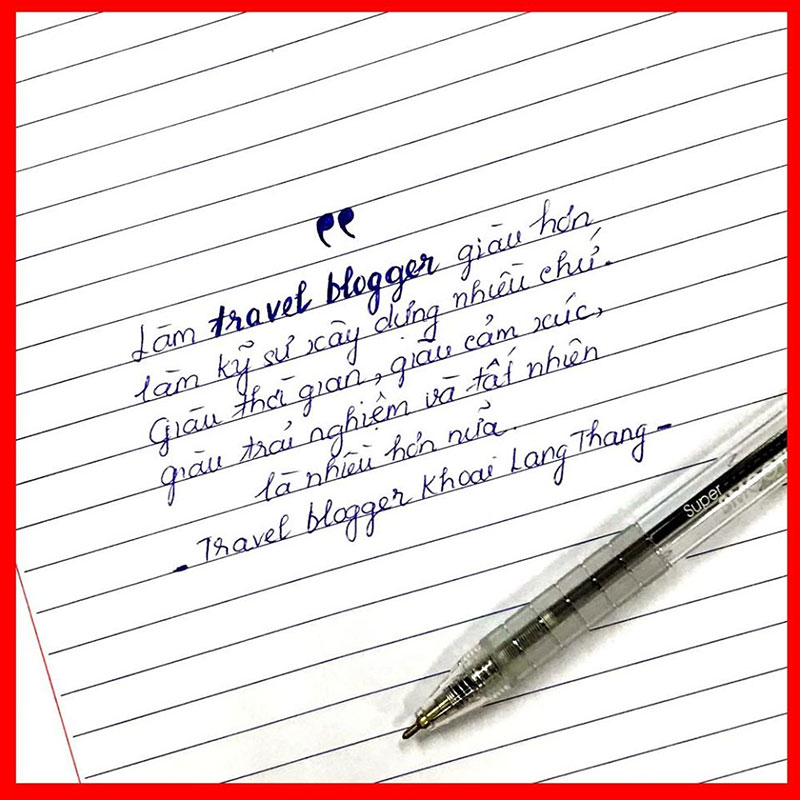 "
Làm travel blogger giàu hơn
làm kỹ sư xây dựng nhiều chứ.
Giàu thời gian, giàu cảm xúc,
giàu trải nghiệm và tất nhiên
là nhiều hơn nữa.
- Travel blogger Khoai Lang Thang -
Super